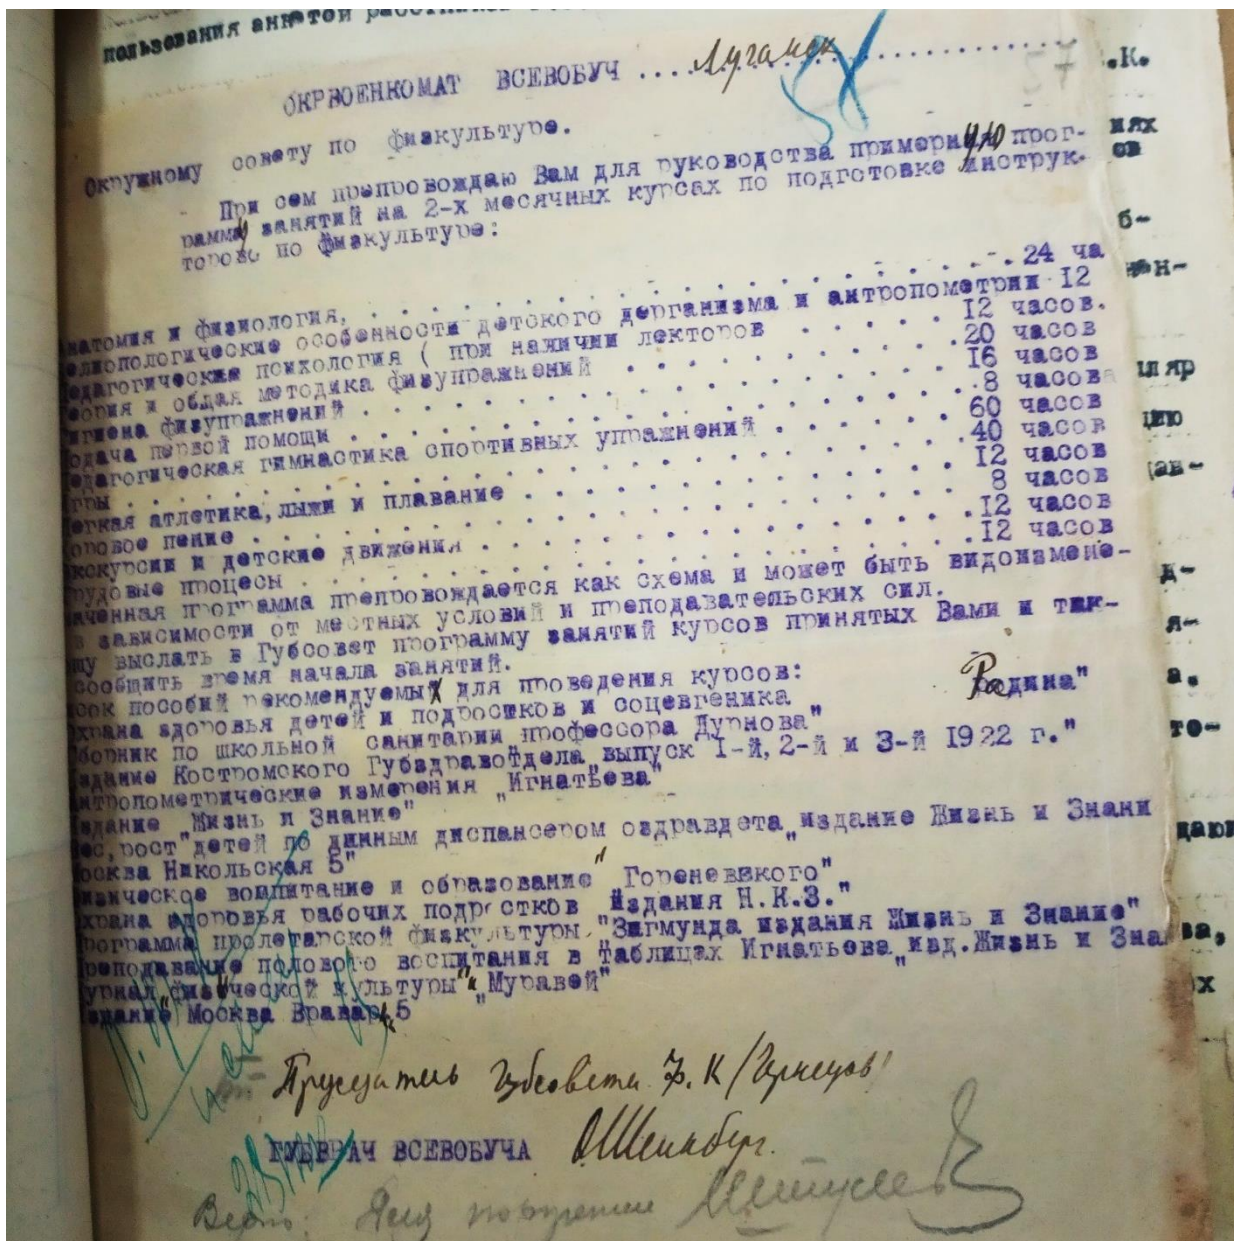 пользования анкетой
ОКРВОЕНКОМАТ ВСЕВОБУЧ .... Луганск
58
57
Окружному совету по физкультуре.
При сем препровождаю Вам для руководства примерную прог-
рамму занятий на 2-х месячных курсах по подготовке инструк-
торов по физкультуре:
натомия и физиология, . . . . . . . . . . . . . . . . 24 ча
особенности детского дерганизма и антропометрии 12
едагогические психология ( при наличии лекторов 12 часов.
еория и общая методика физупражнений . . . . . . 20 часов
игиена физупражнений . . . . . . . . . . . . . 16 часов
одача первой помощи . . . . . . . . . . . . . 8 часов
едагогическая гимнастика спортивных упражнений . . . . 60 часов
гры . . . . . . . . . . . . . . . . . . 40 часов
егкая атлетика, лыжи и плавание . . . . . . . . . 12 часов
оровое пение . . . . . . . . . . . . . . . 8 часов
кскурсии и детские движения . . . . . . . . . . 12 часов
рудовые процесы . . . . . . . . . . . . . . 12 часов
наченная программа препровождается как схема и может быть видоизмене-
в зависимости от местных условий и преподавательских сил.
ошу выслать в Губсовет программу занятий курсов принятых Вами и так-
сообщить время начала занятий.
исок пособий рекомендуемых для проведения курсов:
храна здоровья детей и подростков и соцевгеника Радина"
борник по школьной санитарии профессора Дурнова"
здание Костромского Губздравотдела „выпуск I-й, 2-й и 3-й 1922 г."
нтропометрические измерения „Игнатьева"
здание "Жизнь и Знание"
ес, рост "детей по данным диспансером оздравдета „издание Жизнь и Знани
осква Никольская 5"
изическое воспитание и образование "Гореневского"
храна здоровья рабочих подростков издания Н.К.З."
рограмма пролетарской физкультуры "Зигмунда издания Жизнь и Знание"
реподавание полового воспитания в таблицах Игнатьева „изд. Жизнь и Знан
урнал „физической культуры" „Муравей"
здание Москва Вравар 5
Председатель Губсовета Ф. К
ГУБВРАЧ ВСЕВОБУЧА Шейнберг.
Верно: